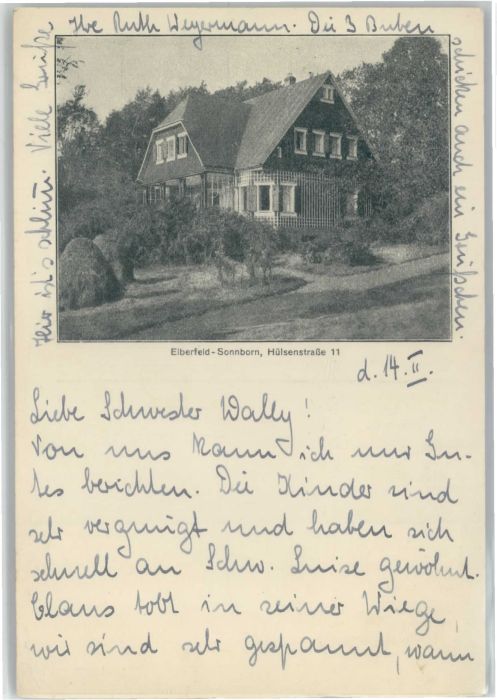 Hier ist's schlim. Viele Grüße
Ihre Ruth Weyermann. Die 3 Buben
schicken auch ein Grüßchen.
Elberfeld-Sonnborn, Hülsenstraße 11
d. 14. II.
Liebe Schwester Wally!
Von uns kann ich nur Gu-
tes berichten. Die Kinder sind
sehr vergnügt und haben sich
schnell an Schw. Luise gewöhnt.
Claus tobt in seiner Wiege,
wir sind sehr gespannt, wann